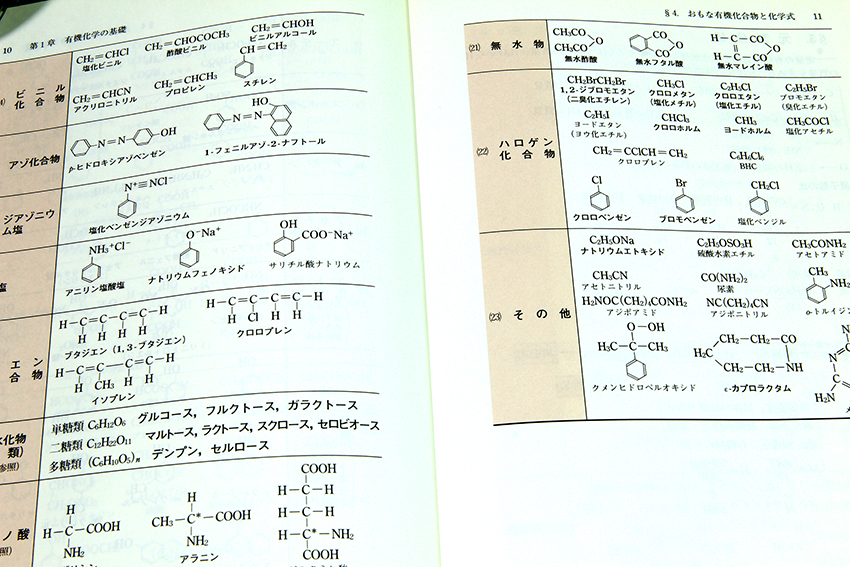 10 第1章 有機化学の基礎
ビニル化合物
CH₂=CHCl CH₂=CHOCOCH₃ CH₂=CHOH
塩化ビニル 酢酸ビニル ビニルアルコール
CH=CH₂
CH₂=CHCN CH₂=CHCH₃
アクリロニトリル プロピレン スチレン
アゾ化合物
N=N OH
p-ヒドロキシアゾベンゼン
HO
N=N
1-フェニルアゾ-2-ナフトール
ジアゾニウム塩
N⁺≡NCl⁻
塩化ベンゼンジアゾニウム
塩
NH₃⁺Cl⁻ O⁻Na⁺ OH COO⁻Na⁺
アニリン塩酸塩 ナトリウムフェノキシド サリチル酸ナトリウム
エン
合物
H-C=C-C=C-H
H H H H
ブタジエン(1,3-ブタジエン)
H-C=C-C=C-H
H Cl H H
クロロプレン
H-C=C-C=C-H
H CH₃ H H
イソプレン
水化物
類)
参照)
単糖類 C₆H₁₂O₆ グルコース,フルクトース,ガラクトース
二糖類 C₁₂H₂₂O₁₁ マルトース,ラクトース,スクロース,セロビオース
多糖類 (C₆H₁₀O₅)n デンプン,セルロース
ノ酸
照)
H
H-C-COOH
NH₂
H
CH₃-C*-COOH
NH₂
アラニン
COOH
H-C-H
H-C-H
H-C*-NH₂
COOH
§4. おもな有機化合物と化学式 11
(21) 無水物
CH₃CO
O
CH₃CO
無水酢酸
CO
O
CO
無水フタル酸
H-C-CO
O
H-C-CO
無水マレイン酸
(22) ハロゲン化合物
CH₂BrCH₂Br CH₃Cl C₂H₅Cl C₂H₅Br
1,2-ジブロモエタン クロロメタン クロロエタン ブロモエタン
(二臭化エチレン) (塩化メチル) (塩化エチル) (臭化エチル)
C₂H₅I CHCl₃ CHI₃ CH₃COCl
ヨードエタン クロロホルム ヨードホルム 塩化アセチル
(ヨウ化エチル)
CH₂=CClCH=CH₂ C₆H₆Cl₆
クロロプレン BHC
Cl Br CH₂Cl
クロロベンゼン ブロモベンゼン 塩化ベンジル
(23) その他
C₂H₅ONa C₂H₅OSO₃H CH₃CONH₂
ナトリウムエトキシド 硫酸水素エチル アセトアミド
CH₃CN CO(NH₂)₂ CH₃
アセトニトリル 尿素 NH₂
H₂NOC(CH₂)₄CONH₂ NC(CH₂)₄CN
アジポアミド アジポニトリル o-トルイジン
O-OH
H₃C-C-CH₃
クメンヒドロペルオキシド
CH₂-CH₂-CO
H₂C
CH₂-CH₂-NH
ε-カプロラクタム
N
C
H₂N